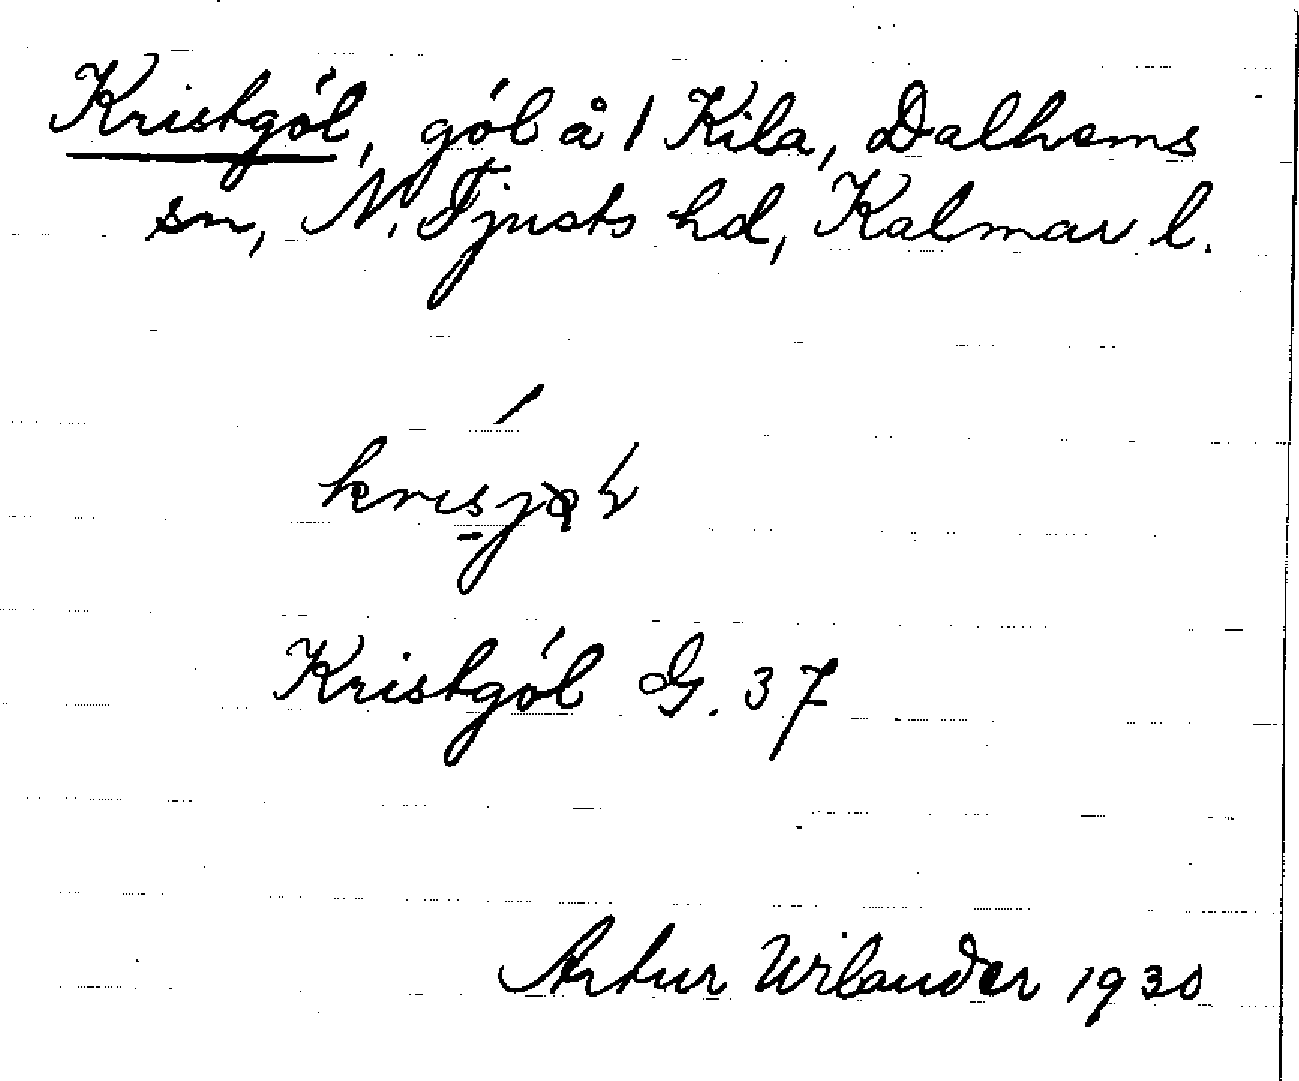 Kristgól, gól å 1 Kila, Dalhems
sn, N. Tjusts hd, Kalmar l.
Kristgól G. 37
Artur Wilander 1930